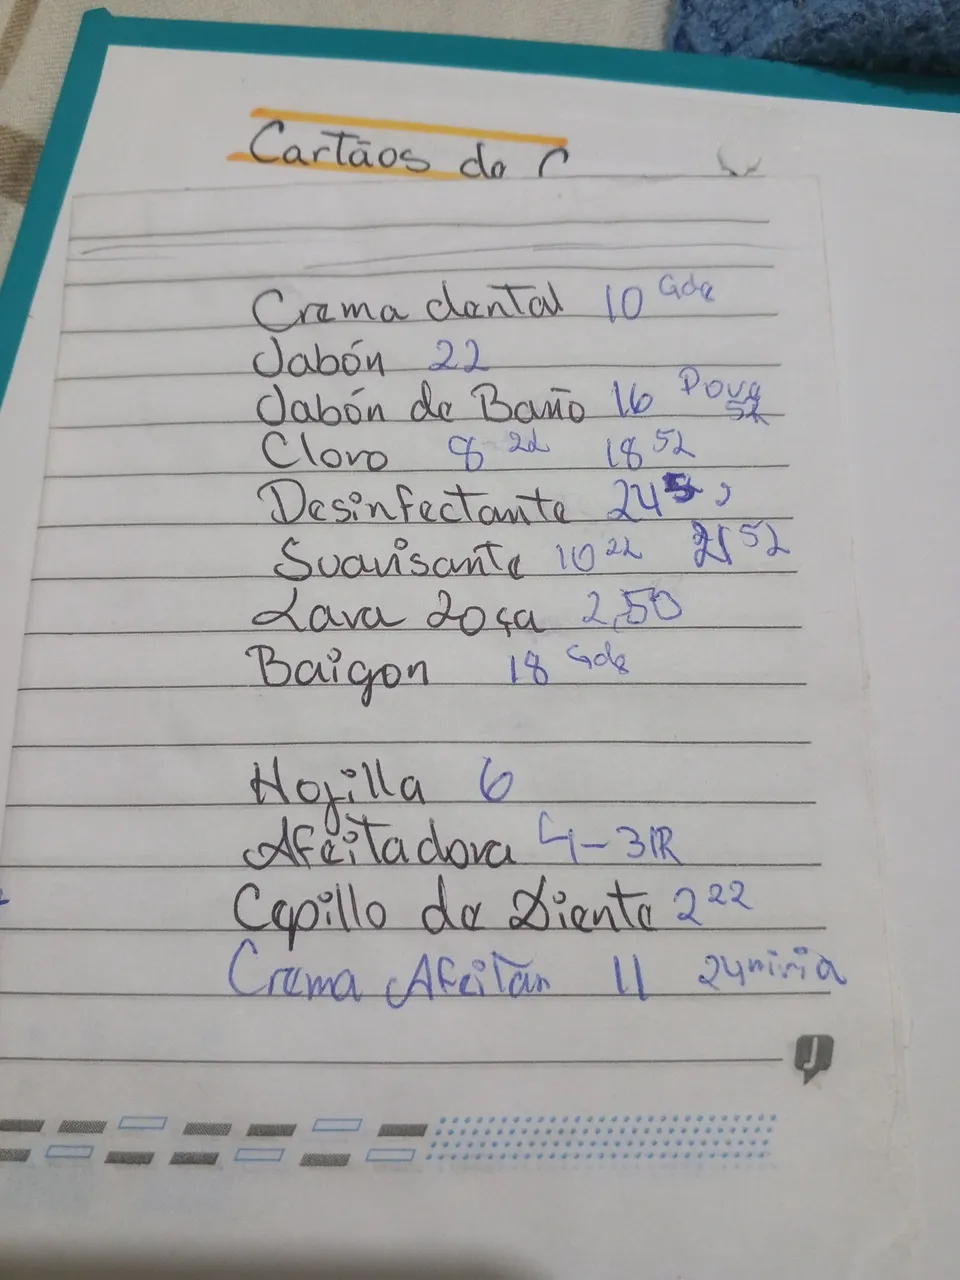 Cartãos de C
Crema dental 10 Gde
Jabón 22
Jabón de Baño 16
Cloro 8 2L 18 5L
Desinfectante 24
Suavisante 10 2L 21 5L
Lava loça 2,50
Baigon 18 Gde
Hojilla 6
Afeitadora 4-3R
Cepillo de Diente 2
Crema Afeitar 11
J